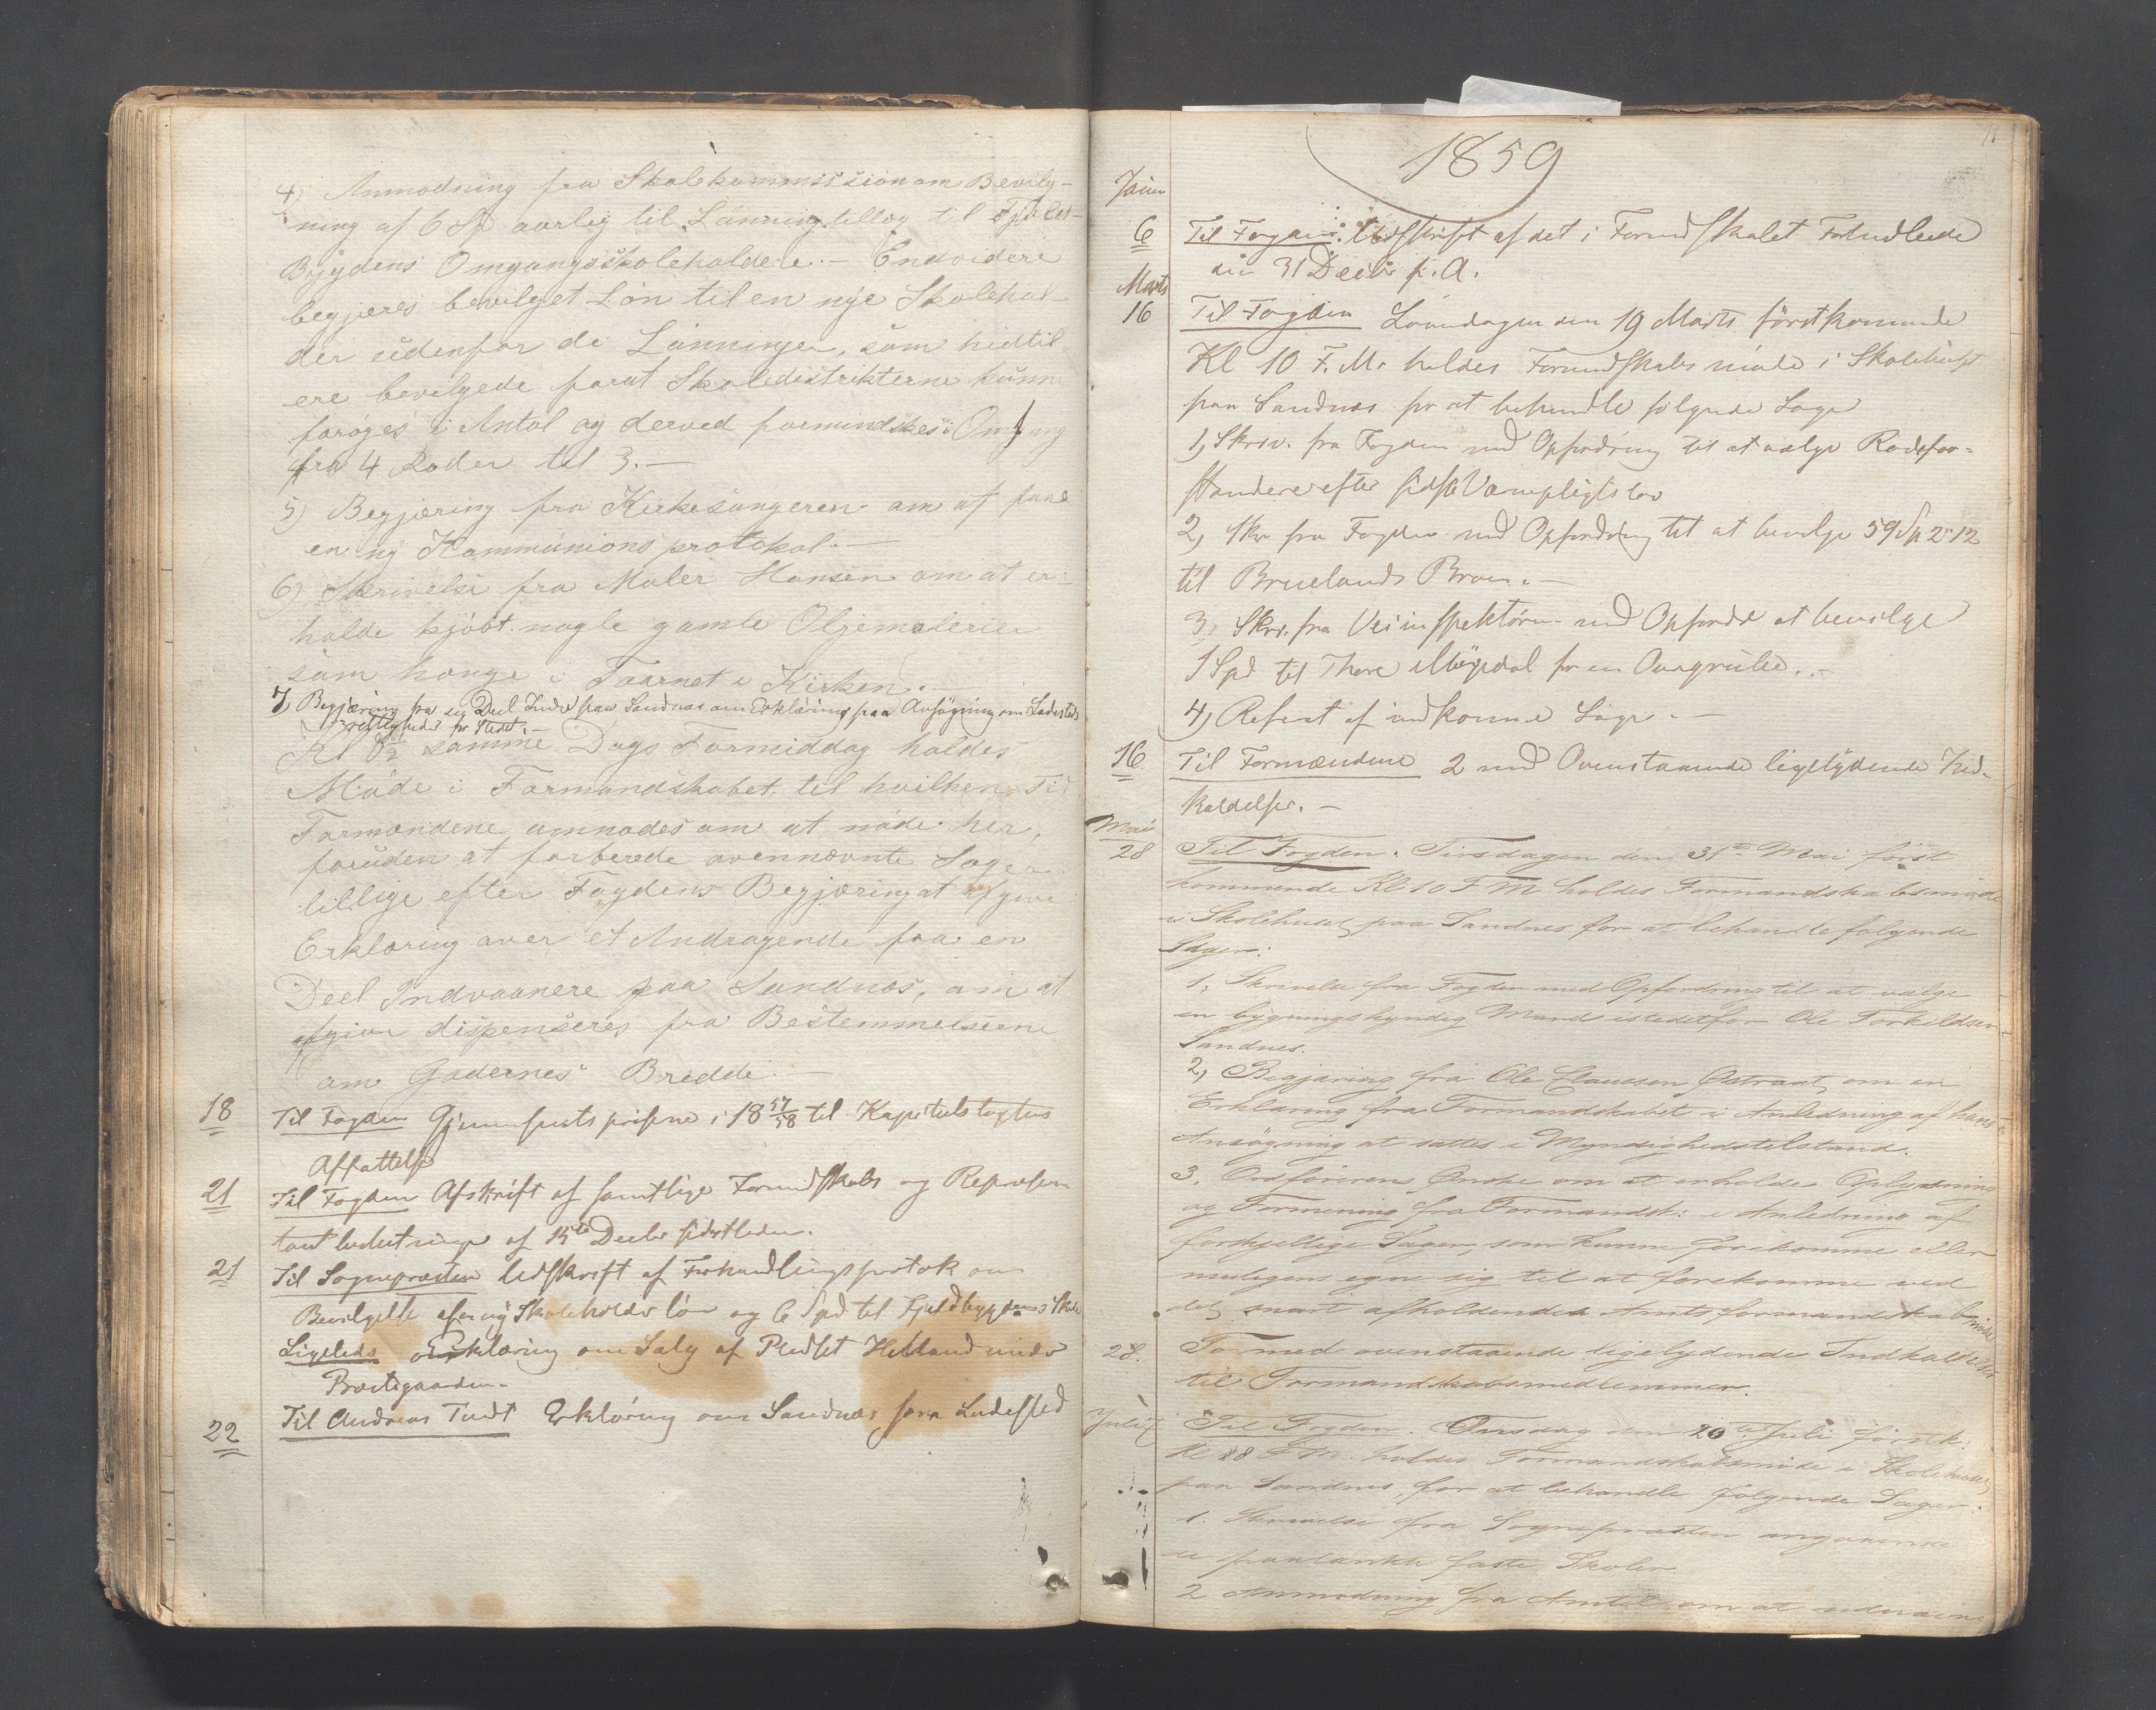 4) Anmodning fra Skolekommissionen om Bevilg-
ning af 6 Spd aarlig til Lönningstillæg til Fjeld-
Bygdens Omgangsskoleholdere. — Endvidere
begjæres bevilget Lön til en nye Skolehol-
der udenfor de Lönninger, som hidtil
ere bevilgede forat Skoledistrikterne kunne
foröges i Antal og derved formindskes i Omgang
fra 4 Roder til 3. —
5) Begjæring fra Kirkesangeren om at faae
en ny Kommunionsprotokol. —
6) Skrivelse fra Maler Hansen om at er-
holde kjöbt nogle gamle Oljemalerier
som hænge i Taarnet i Kirken. —
7) Begjæring fra en Deel Indv paa Sandnæs om Erklæring paa Ansögning om Ladesteds
rettigheder for Stedet. —
Kl 8½ samme Dags Formiddag holdes
Möde i Formandskabet, til hvilken Tid
Formændene anmodes om at möde her,
foruden at forberede ovennævnte Sager
tillige efter Fogdens Begjæring at afgive
Erklæring over et Andragende fra en
Deel Indvaanere paa Sandnæs, om at
afgive dispenseres fra Bestemmelserne
om Gadernes Bredde. —
18 Til Fogden Gjennemsnitspriserne i 18 57/58 til Kapitelstaxtens
Affattelse
21 Til Fogden Afskrift af samtlige Formandskabs og Repræsen
tantbeslutninger af 15de Decbr sidstleden.
21 Til Sognepresten Udskrift af Forhandlingsprotok om
Bevilgelse af en ny Skoleholder lön og 6 Spd til Fjeldbygdens Skole
Ligeledes Erklæring om Salg af Pladset Helland under
Præstegaarden.
22 Til Andreas Erklæring om Sandnæs som Ladested
1859
Januar
6 Til Fogden. Udskrift af det i Formdskabet Forhandlede
den 31 Decbr f. A.
Marts
16 Til Fogden Löverdagen den 19 Marts förstkommende
Kl 10 F. M. holdes Formandskabs möde i Skolehuset
paa Sandnæs for at behandle fölgende Sager
1) Skriv. fra Fogden med Opfordring til at vælge Rodefor-
standere efter sidste Værnepligtslov
2) Skr fra Fogden med Opfordring til at bevilge 59 Sp 2 12
til Bruelands Broen. —
3) Skr. fra Veiinspektören med Opfordr at bevilge
1 Spd til Thore for en Auragrube. —
4) Referat af indkomne Sager. —
16 Til Formændene 2 med Ovenstaaende ligelydende Ind-
kaldelser. —
Mai
28 Til Fogden. Tirsdagen den 31te Mai först
kommende Kl 10 F M holdes Formandskabsmöde
i Skolehuset paa Sandnes for at behandle fölgende
Sager:
1, Skrivelse fra Fogden med Opfordring til at vælge
en bygningskyndig Mand istedetfor Ole Torkildsen
Sandnes.
2, Begjæring fra Ole Claussen Östraat om en
Erklæring fra Formandskabet i Anledning af hans
Ansögning at sættes i Myndighedstilstand.
3, Ordförerens Önske om at erholde Oplysning
og Formening fra Formandsk: i Anledning af
forskjellige Sager, som kunne forekomme eller
muligens egne sig til at forekomme ved
det snart afholdende Amtsformandskabsmöde
28. To med ovenstaaende ligelydende Indkaldelser
til Formandskabsmedlemmer.
Juli
Til Fogden. Onsdag den 20de Juli förstk:
Kl 8 F M. holdes Formandskabsmöde i Skolehuset
paa Sandnes for at behandle fölgende Sager:
1. Skrivelse fra Sognepræsten angaaende
faste Skoler
2 Anmodning fra Amtet om at